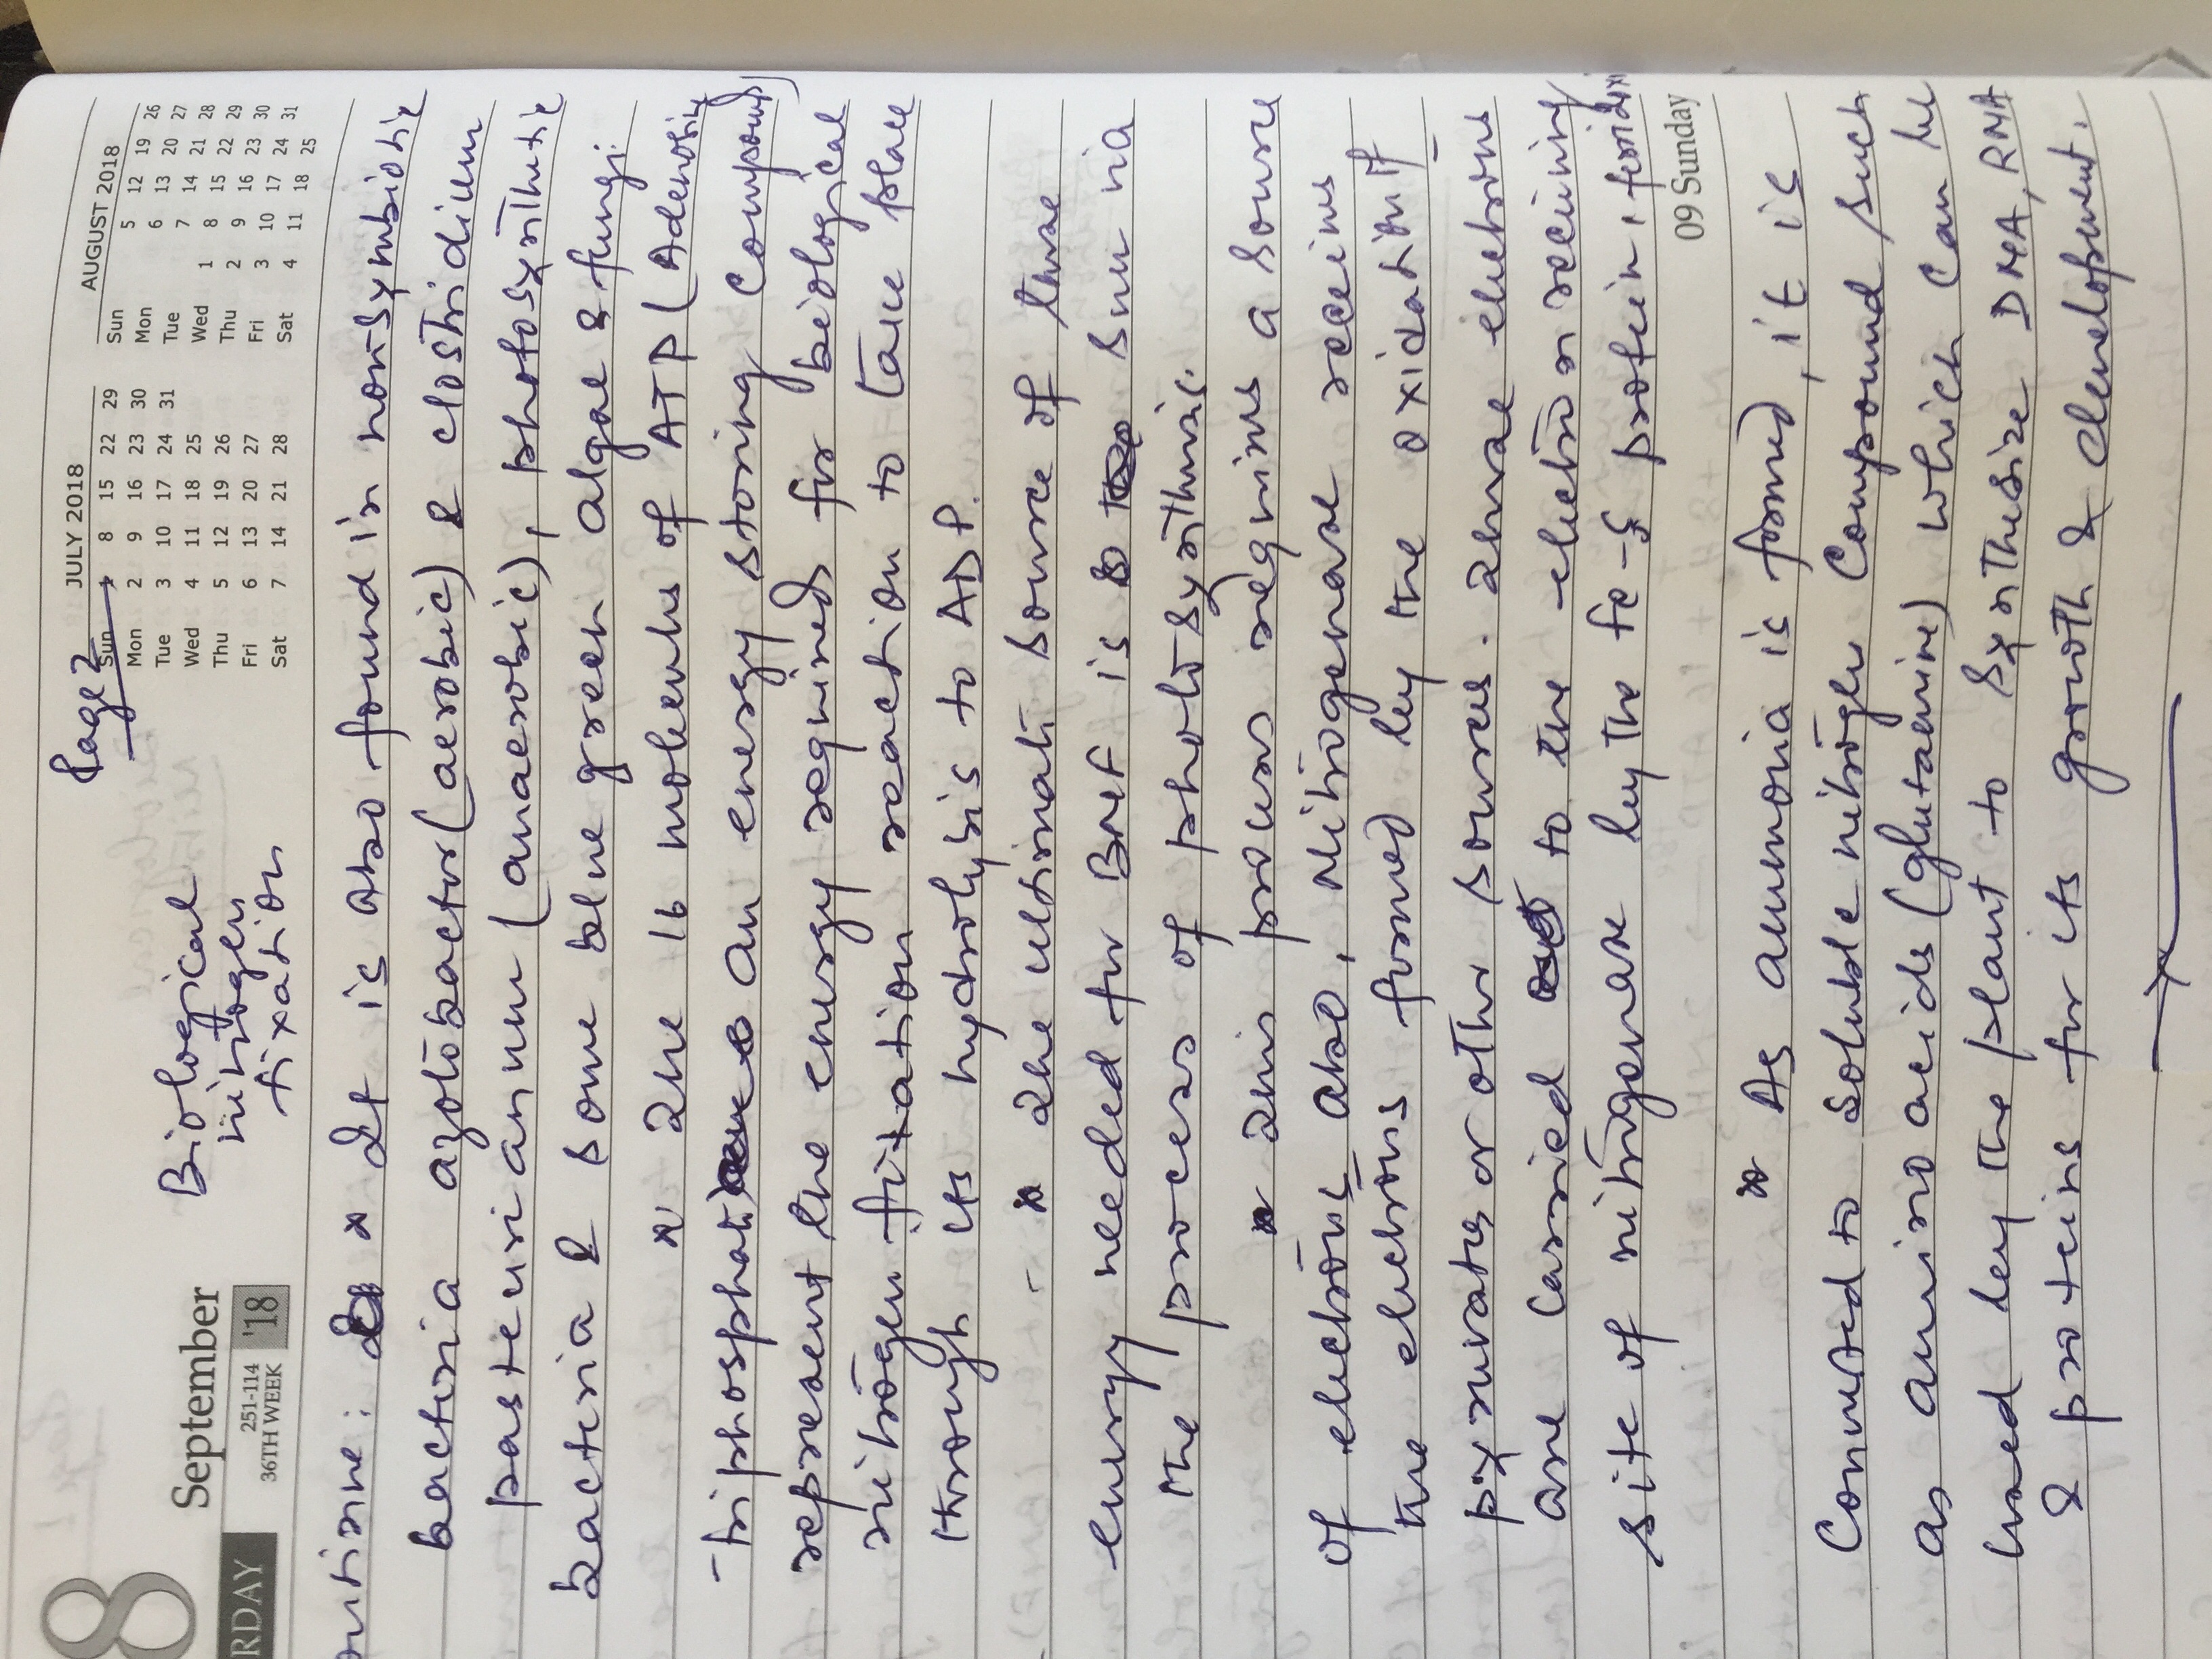 Page 2
8 September
RDAY
251-114
36TH WEEK '18
Biological
nitrogen
fixation
JULY 2018
Sun 1 8 15 22 29
Mon 2 9 16 23 30
Tue 3 10 17 24 31
Wed 4 11 18 25
Thu 5 12 19 26
Fri 6 13 20 27
Sat 7 14 21 28
AUGUST 2018
Sun 5 12 19 26
Mon 6 13 20 27
Tue 7 14 21 28
Wed 1 8 15 22 29
Thu 2 9 16 23 30
Fri 3 10 17 24 31
Sat 4 11 18 25
It is also found in nonsymbiotic
bacteria azotobactor (aerobic) & clostridium
pasteurianum (anaerobic), photosynthetic
bacteria & some blue green algae & fungi.
* The 16 molecules of ATP (Adenosine
triphosphate) an energy storing compound)
represent the energy required for biological
nitrogen fixation reaction to take place
through its hydrolysis to ADP.
* The ultimate source of these
energy needed for BNF is sun via
the process of photosynthesis.
* This process requires a source
of electrons also, Nitrogenase receives
the electrons formed by the oxidation of
pyruvates or other sources. These electrons
are carried to the electron receiving
site of nitrogenase by the fe-S protein,
09 Sunday
* As ammonia is formed, it is
converted to soluble nitrogen compound such
as amino acids (glutamine) which can be
used by the plant to synthesize DNA, RNA
& proteins for its growth & development.